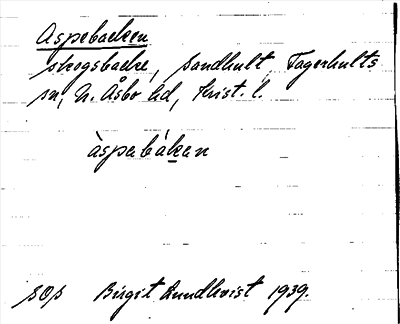 Aspebacken
skogsbacke, Sandhult, Fagerhults
sn, N. Åsbo hd, Krist. l.
àspebáken
SOS Birgit Lundkvist 1939.